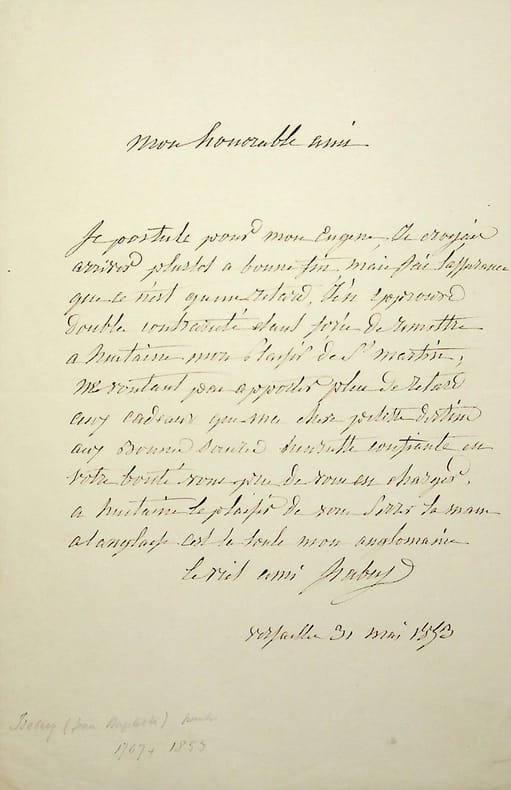 mon honorable ami
Je postule pour mon Eugene, Je croyais
arriver plustot a bonne fin, mais J'ai l'assurance
que ce n'est qu'un retard, J'en eprouve
double contrarieté etant forcé de remettre
a huitaine mon plaisir de St martin,
ne voulant pas apporter plus de retard
aux cadeaux que ma chere petite destine
aux bonnes confiante en
votre bonté vous prie de vous en charger.
a huitaine le plaisir de vous serrer la main
a l'anglaise c'est la seule mon anglomanie
le viel ami Isabey
versailles 31 mai 1853
Isabey (Jean Baptiste)
1767 + 1855